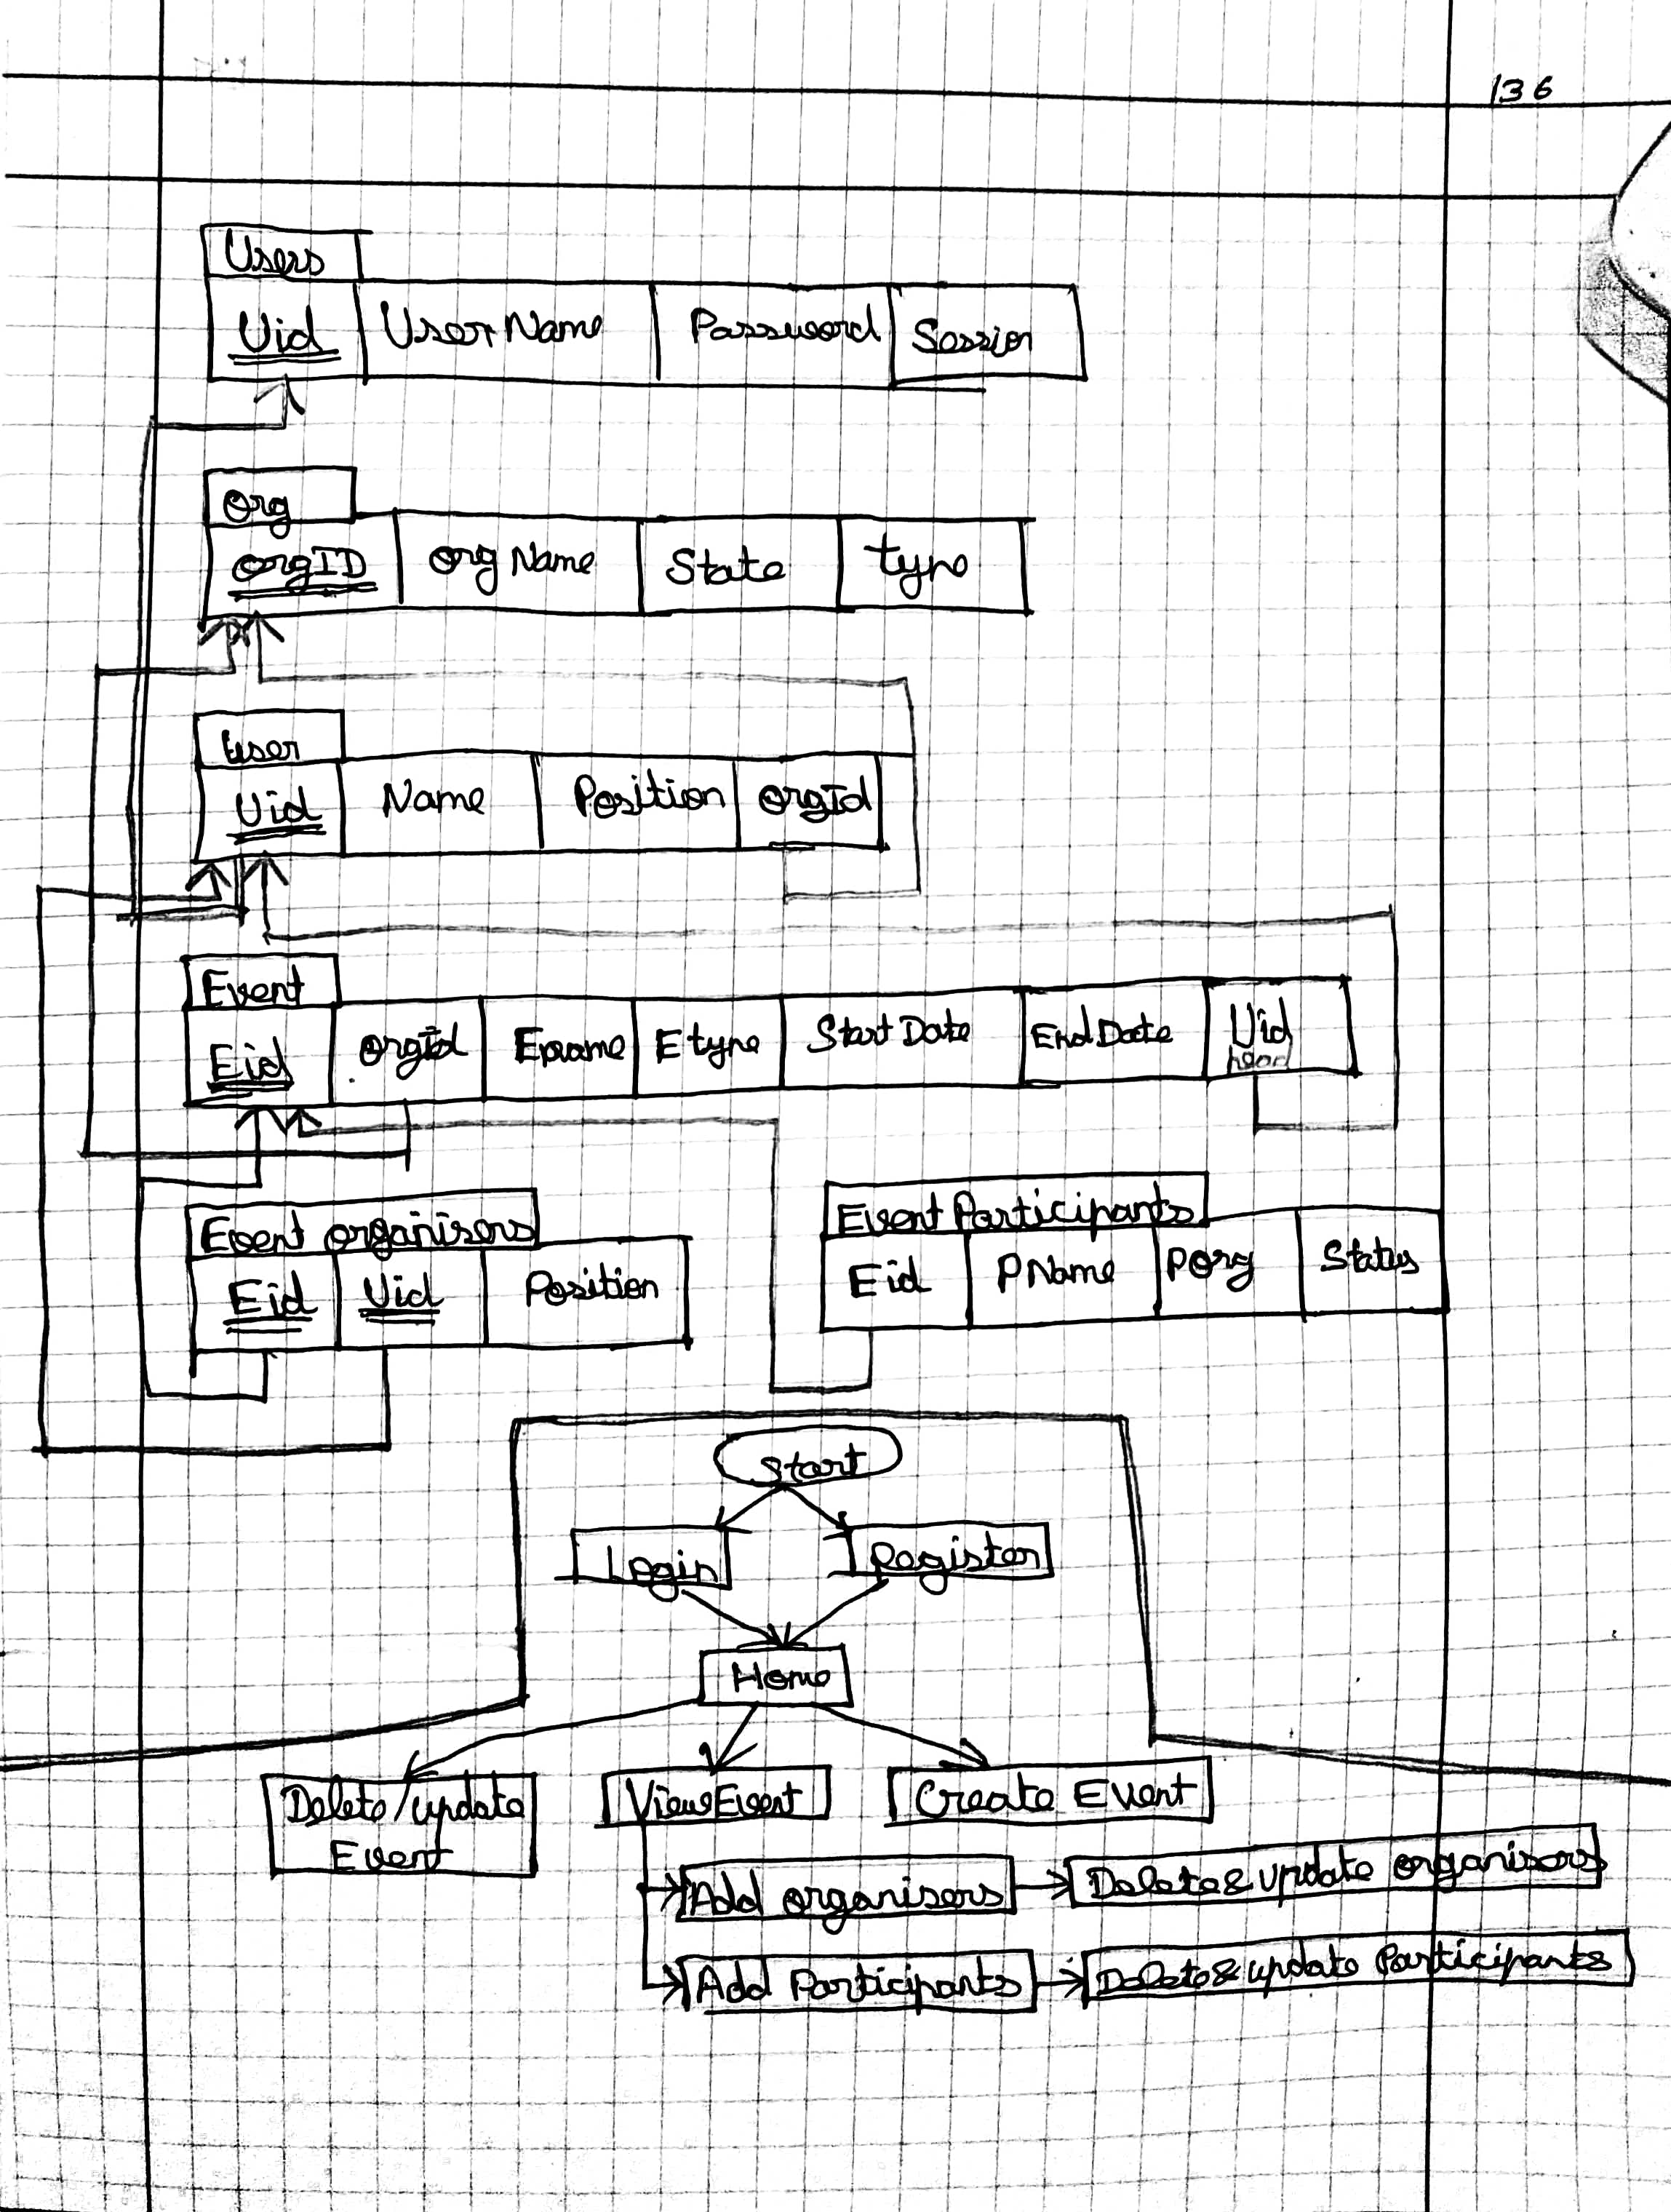 136
Users
Uid UserName Password Session
Org
orgID orgName State type
User
Uid Name Position orgId
Event
Eid orgId Ename Etype StartDate EndDate Uid
head
Event organisers
Eid Uid Position
Event Participants
Eid PName POrg Status
Start
Login Register
Home
Delete/update
Event
ViewEvent
Create Event
Add organisers Delete & update organisers
Add Participants Delete & update Participants